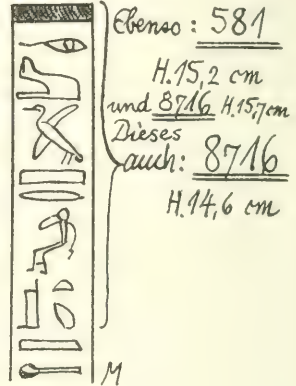 Ebenso: 581
H. 15,2 cm
und 8716 H. 15,7 cm
Dieses
auch: 8716
H. 14,6 cm
M